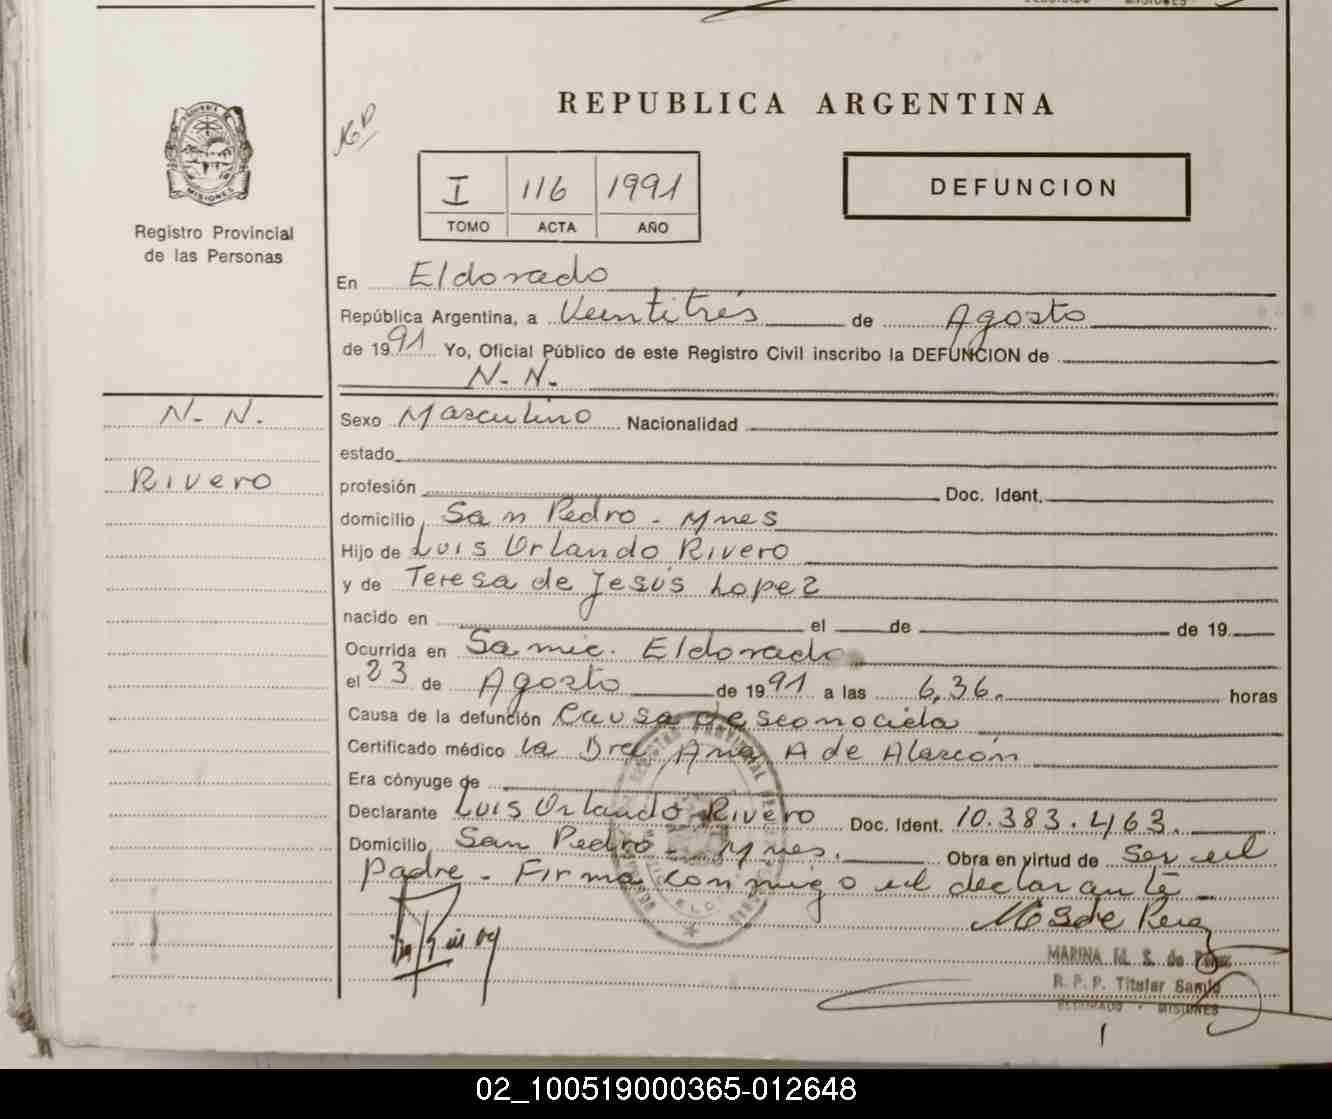 REPUBLICA ARGENTINA
MISIONES
Registro Provincial
de las Personas
I 116 1991
TOMO ACTA AÑO
DEFUNCION
En Eldorado
República Argentina, a Veintitrés de Agosto
de 1991 Yo, Oficial Público de este Registro Civil inscribo la DEFUNCION de
N. N.
N. N.
Rivero
Sexo Masculino Nacionalidad
estado
profesión Doc. Ident.
domicilio San Pedro - Mnes
Hijo de Luis Orlando Rivero
y de Teresa de Jesús Lopez
nacido en el de de 19
Ocurrida en Samic. Eldorado
el 23 de Agosto de 1991 a las 6,36. horas
Causa de la defunción Causa desconocida
Certificado médico la Dra. Ana A de Alarcón
Era cónyuge de
Declarante Luis Orlando Rivero Doc. Ident. 10.383.463.
Domicilio San Pedro - Mnes. Obra en virtud de Ser el
Padre - Firma conmigo el declarante
MARINA M. S. de
R. P. P. Titular Samic
ELDORADO - MISIONES
02_100519000365-012648